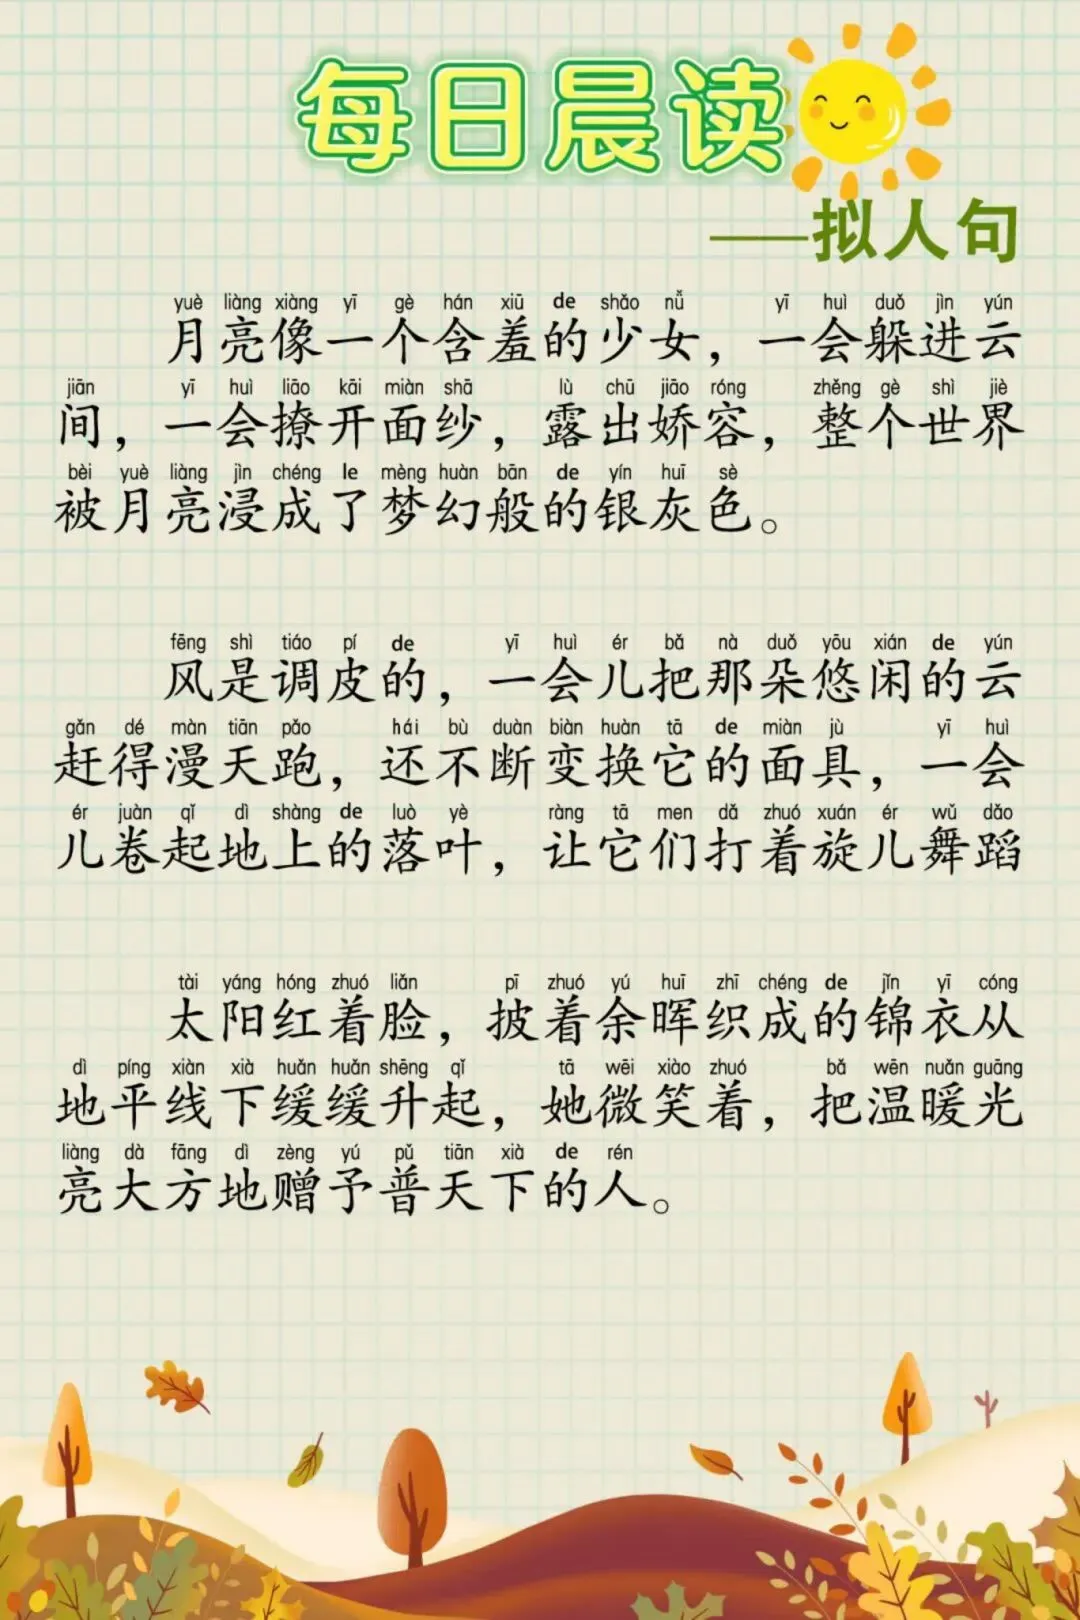 每日晨读
——拟人句
yuè liàng xiàng yī gè hán xiū de shǎo nǚ yī huì duǒ jìn yún
月亮像一个含羞的少女，一会躲进云
jiān yī huì liāo kāi miàn shā lù chū jiāo róng zhěng gè shì jiè
间，一会撩开面纱，露出娇容，整个世界
bèi yuè liàng jìn chéng le mèng huàn bān de yín huī sè
被月亮浸成了梦幻般的银灰色。
fēng shì tiáo pí de yī huì ér bǎ nà duǒ yōu xián de yún
风是调皮的，一会儿把那朵悠闲的云
gǎn dé màn tiān pǎo hái bù duàn biàn huàn tā de miàn jù yī huì
赶得漫天跑，还不断变换它的面具，一会
ér juàn qǐ dì shàng de luò yè ràng tā men dǎ zhuó xuán ér wǔ dǎo
儿卷起地上的落叶，让它们打着旋儿舞蹈
tài yáng hóng zhuó liǎn pī zhuó yú huī zhī chéng de jǐn yī cóng
太阳红着脸，披着余晖织成的锦衣从
dì píng xiàn xià huǎn huǎn shēng qǐ tā wēi xiào zhuó bǎ wēn nuǎn guāng
地平线下缓缓升起，她微笑着，把温暖光
liàng dà fāng dì zèng yú pǔ tiān xià de rén
亮大方地赠予普天下的人。